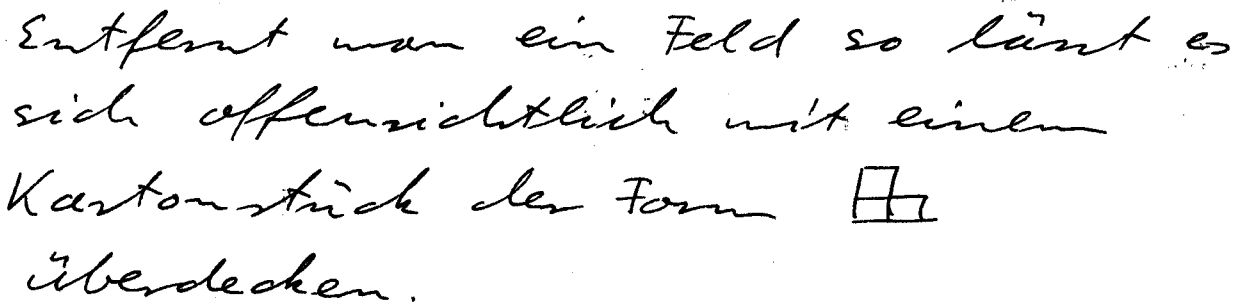 Entfernt man ein Feld so lässt es
sich offensichtlich mit einem
Kartonstück der Form
überdecken.